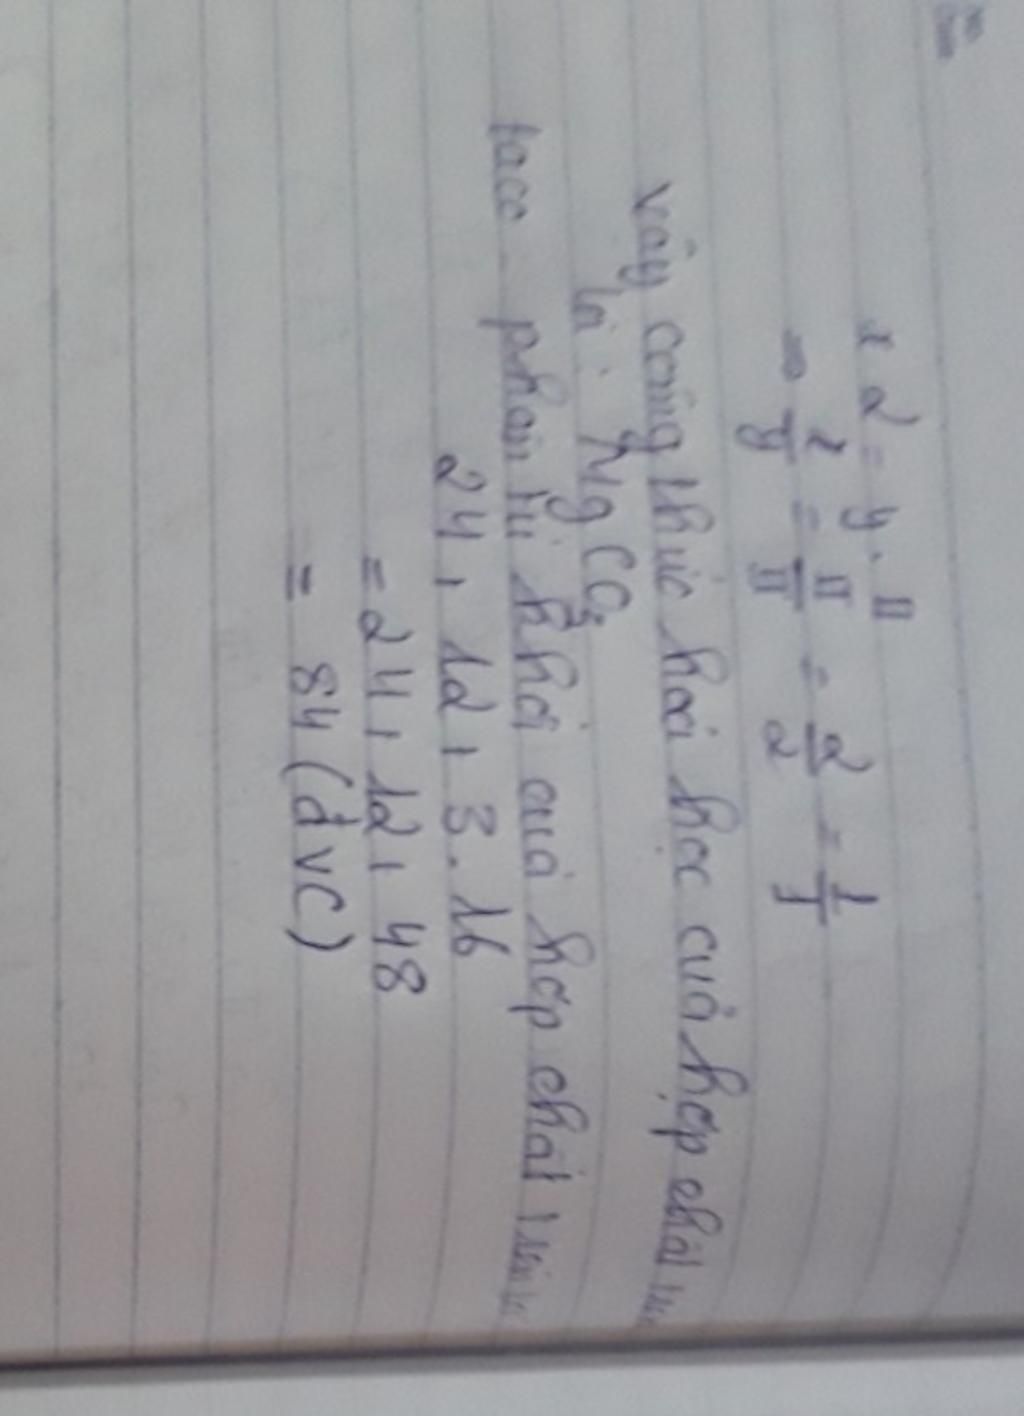 x 2 = y. II
⇒ x/y = II/II = 2/2 = 1/1
vậy công thức hoá học của hợp chất
là : MgCO3
ta có phân tử khối của hợp chất
24 + 12 + 3.16
= 24 + 12 + 48
= 84 (đvC)